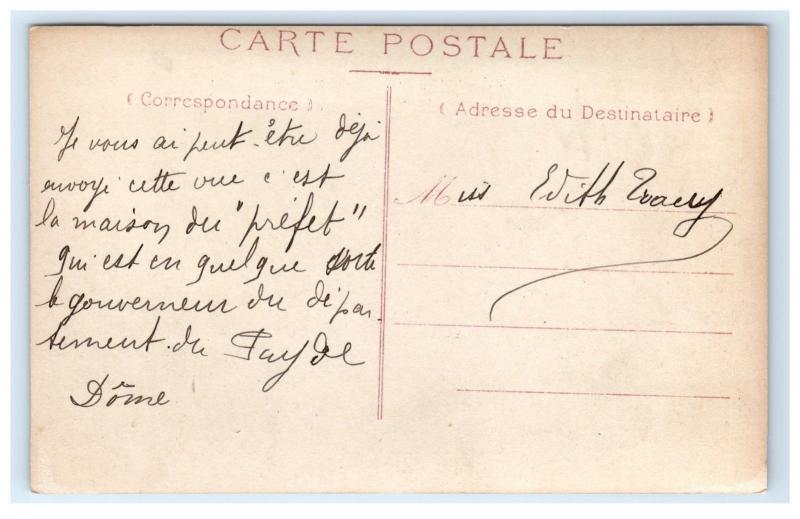 CARTE POSTALE
(Correspondance)
(Adresse du Destinataire)
Je vous ai peut-être déjà
envoyé cette vue c'est
la maison du "préfet"
qui est en quelque sorte
le gouverneur du dépar-
tement du Puy de
Dôme
Miss Edith Tracy